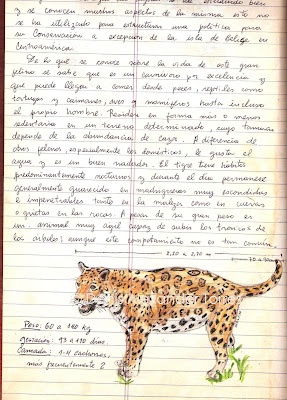 y se conocen muchos aspectos de la misma esto no
se ha utilizado para estructurar una política para
su Conservación a excepción de la isla de Belice en
Centroamérica.
De lo que se conoce sobre la vida de este gran
felino se sabe que es un carnívoro por excelencia y
que puede llegar a comer desde peces, reptiles como
tortugas y caimanes, aves y mamíferos hasta incluso
el propio hombre. Reside en forma más o menos
sedentaria en un terreno determinado, cuyo tamaño
depende de la abundancia de caza. A diferencia de
otros felinos especialmente los domésticos, le gusta el
agua y es un buen nadador. El tigre tiene hábitos
predominantemente nocturnos y durante el día permanece
generalmente guarecido en madrigueras muy escondidas
e impenetrables tanto en la maleza como en cuevas
o grietas en las rocas. A pesar de su gran peso es
un animal muy agil capaz de subir los troncos de
los arboles; aunque este comportamiento no es tan común.
2,20 a 2,70 m
Peso: 60 a 140 kg
gestación: 93 a 110 días.
Camada: 1-4 cachorros,
más frecuentemente 2